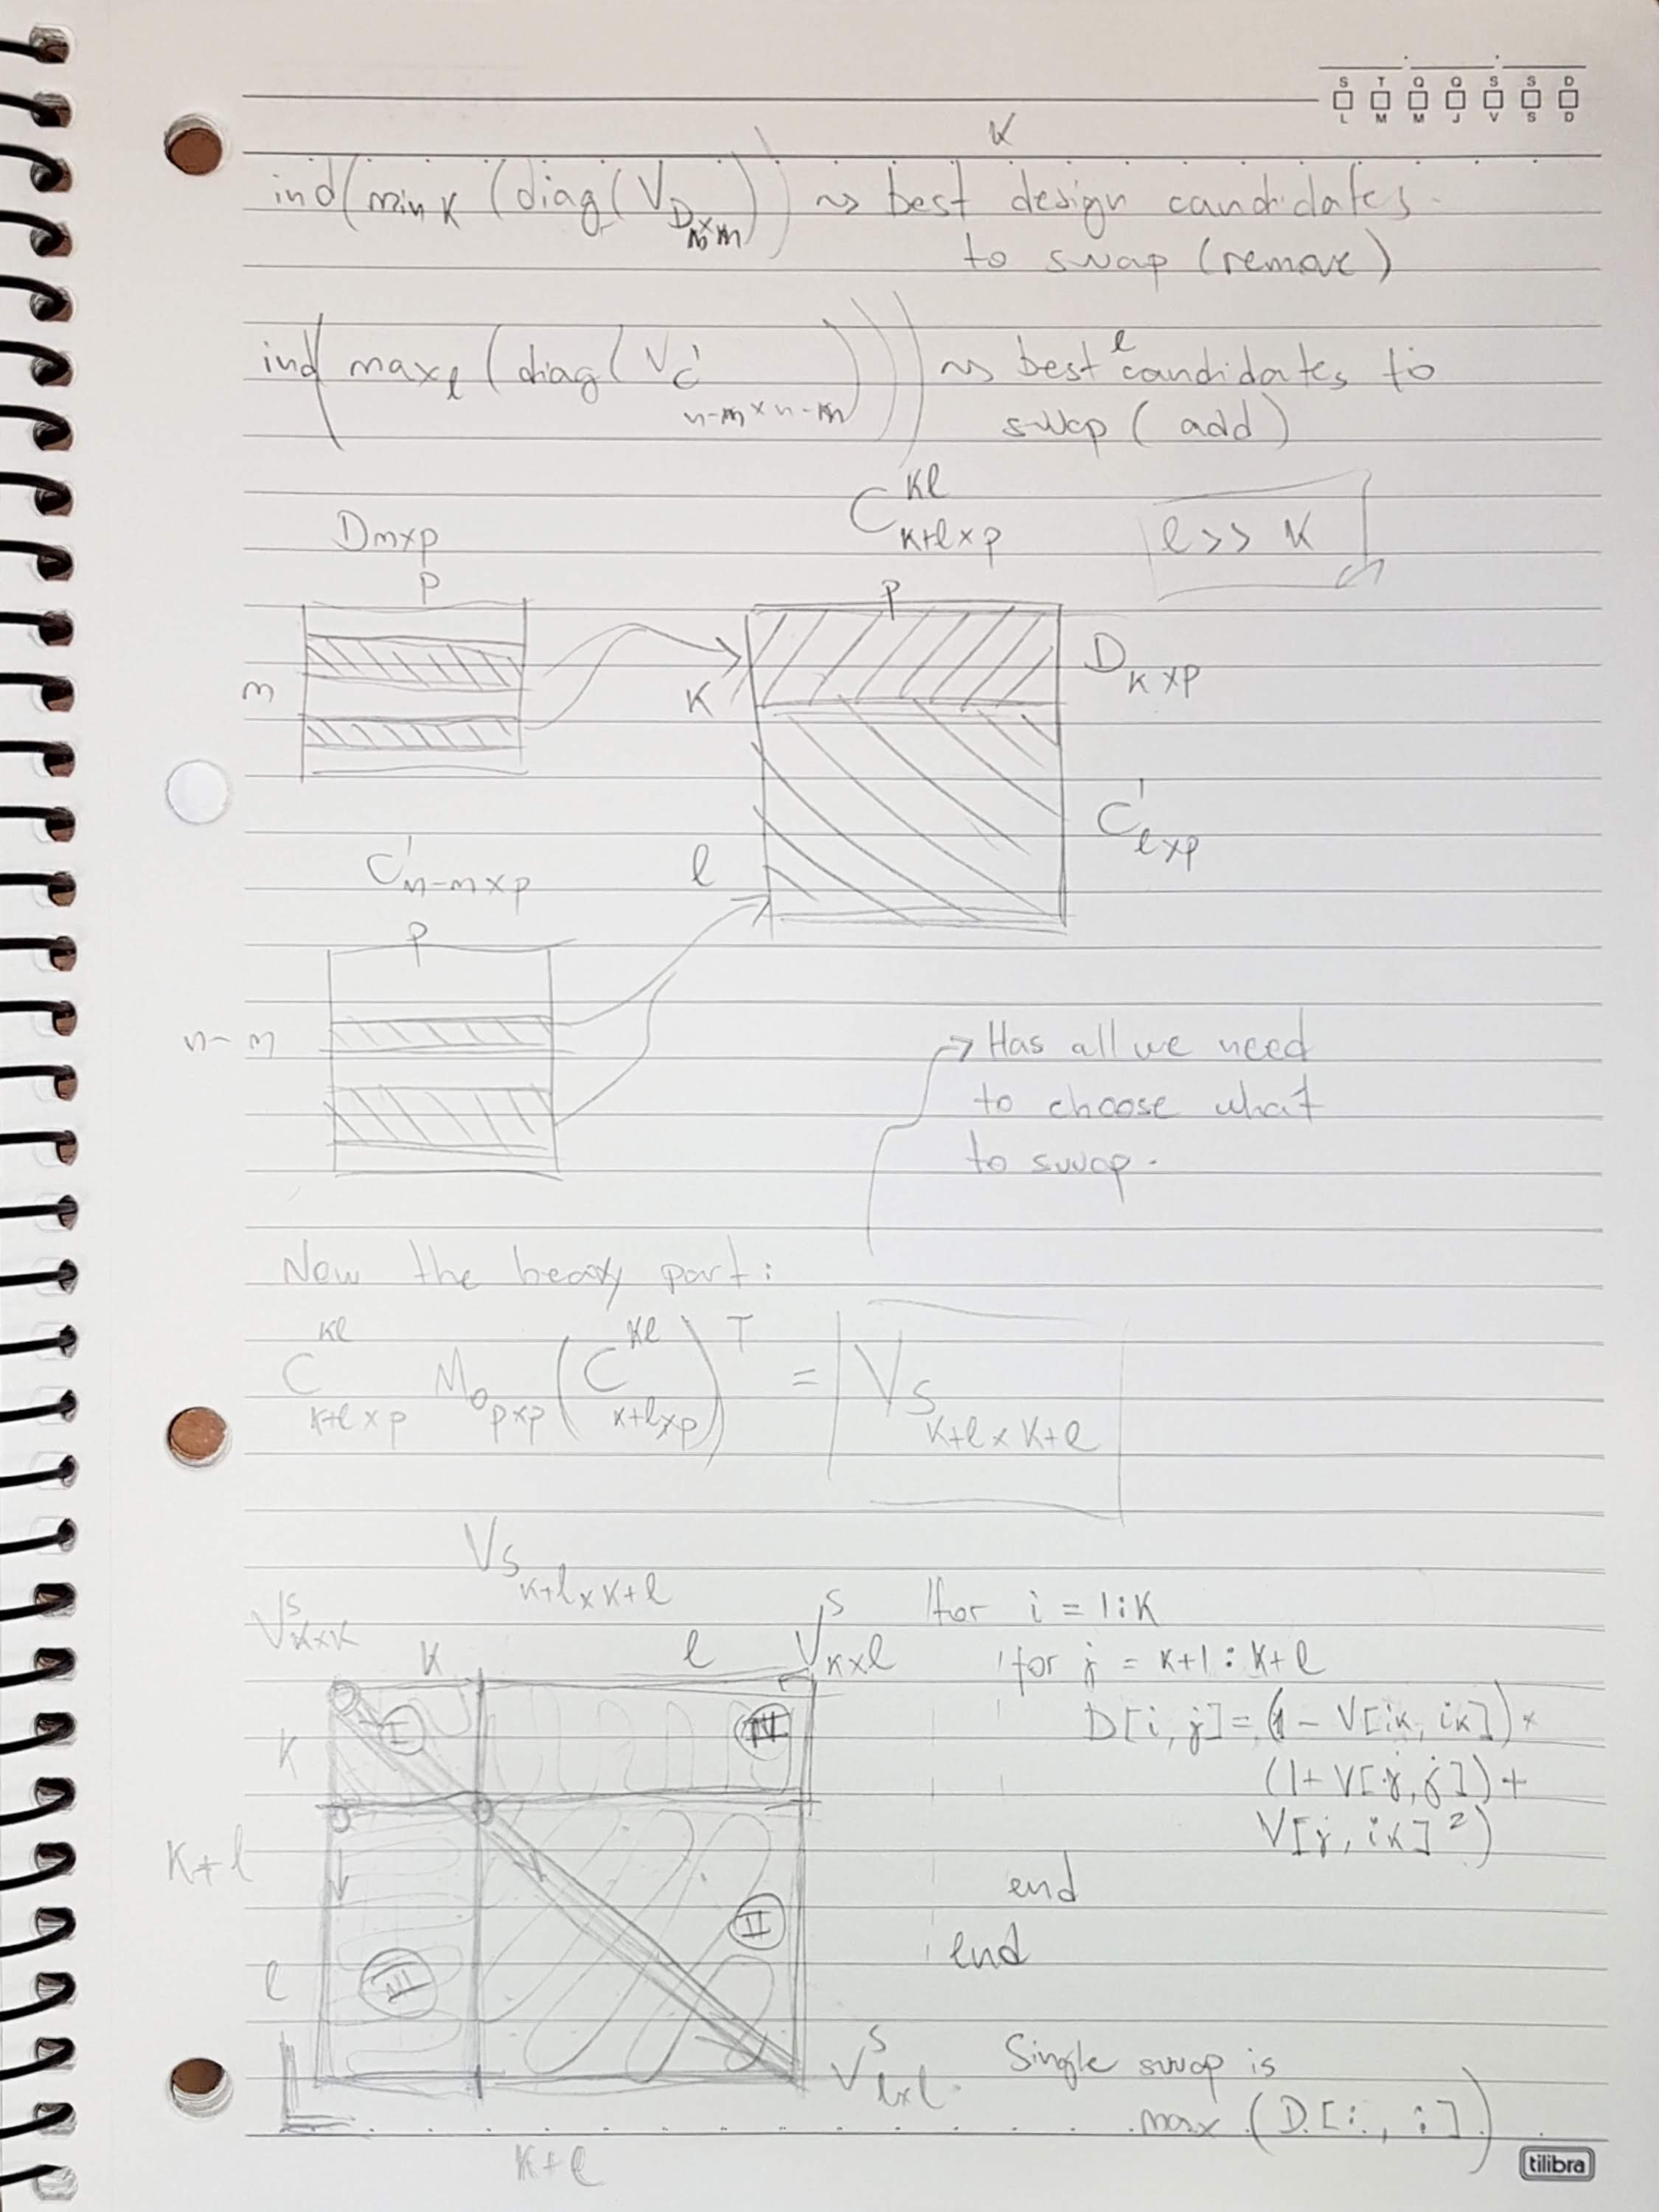 S T Q Q S S D
L M M J V S D
K
ind(min K (diag(V_{D_{m×m}}))) ~> best design candidates
to swap (remove)
ind(max_l (diag(V_{C'_{n-m×n-m}}))) ~> best l candidates to
swap (add)
D_{m×p}
C^{kl}_{k+l×p}
l >> K
p
p
m
K
D_{K×p}
C'_{l×p}
C'_{n-m×p}
l
p
n-m
→ Has all we need
to choose what
to swap.
Now the heavy part:
C^{kl}_{k+l×p} M_{0_{p×p}} (C^{kl}_{k+l×p})^T = V_{S_{k+l×k+l}}
V_{S_{k+l×k+l}}
V^S_{K×K}
K
l
V^S_{K×l}
K
I
IV
K+l
l
III
II
V^S_{l×l}
K+l
for i = 1:K
for j = K+1:K+l
D[i,j] = (1 - V[ik,ik]) ×
(1 + V[j,j]) +
V[j,ik]²)
end
end
Single swap is
max (D[:,:])
tilibra